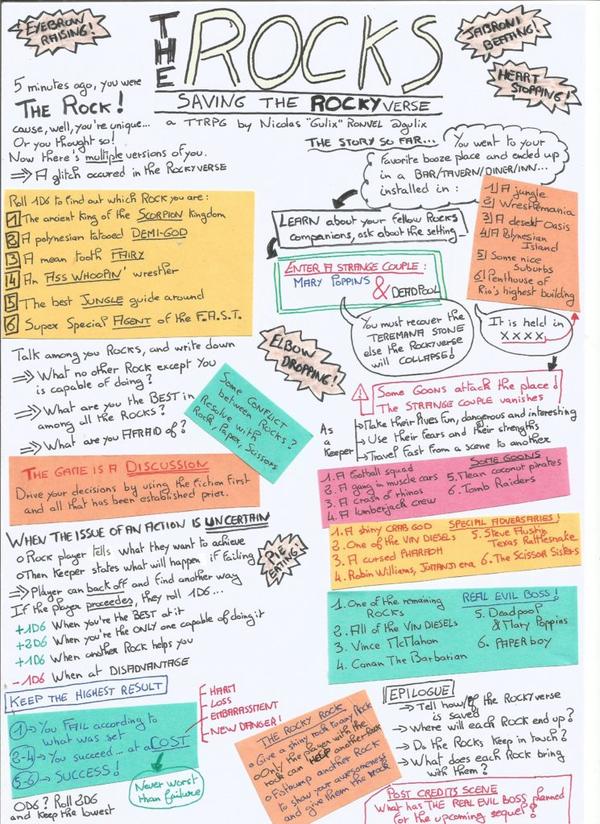 EYEBROW
RAISING!
THE ROCKS
SAVING THE ROCKYVERSE
a TTRPG by Nicolas "Gulix" RONVEL @gulix
JABRONI
BEATING!
HEART
STOPPING!
5 minutes ago, you were
THE ROCK!
cause, well, you're unique...
Or you thought so!
Now there's multiple versions of you.
⇒ A glitch occured in the ROCKYVERSE
Roll 1D6 to find out which ROCK you are:
1 The ancient king of the SCORPION kingdom
2 A polynesian tatooed DEMI-GOD
3 A mean tooth FAIRY
4 An ASS WHOOPIN' wrestler
5 The best JUNGLE guide around
6 Super Special AGENT of the F.A.S.T.
Talk among you ROCKS, and write down
⇒ What no other ROCK except You
is capable of doing?
⇒ What are you the BEST in
among all the ROCKS?
⇒ What are you AFRAID of?
Some CONFLICT
between ROCKS?
Resolve with
Rock, Paper, Scissors
THE GAME IS A DISCUSSION
Drive your decisions by using the fiction first
and all that has been established prior.
WHEN THE ISSUE OF AN ACTION IS UNCERTAIN
o Rock player tells what they want to achieve
o Then Keeper states what will happen if failing
⇒ Player can back off and find another way
If the player proceedes, they roll 1D6...
+1D6 When you're the BEST at it
+2D6 When you're the ONLY one capable of doing it
+1D6 When another Rock helps you
-1D6 When at DISADVANTAGE
PIE
EATING!
KEEP THE HIGHEST RESULT
1 → You FAIL according to
what was set
2-4 → You succeed... at a COST
5-6 → SUCCESS!
HARM
LOSS
EMBARASSMENT
NEW DANGER!
Never worst
than failure
0D6? Roll 2D6
and keep the lowest
THE STORY SO FAR...
You went to your
favorite booze place and ended up
in a BAR/TAVERN/DINER/INN...
installed in:
1) A jungle
2) Wrestlemania
3) A desert Oasis
4) A Polynesian
Island
5) Some nice
Suburbs
6) Penthouse of
Rio's highest building
LEARN about your fellow Rocks
companions, ask about the setting
ENTER A STRANGE COUPLE:
MARY POPPINS & DEADPOOL
You must recover the
TEREMANA STONE
else the ROCKYVERSE
will COLLAPSE!
It is held in
XXXX
ELBOW
DROPPING!
! Some Goons attack the place!
The STRANGE COUPLE vanishes
As
a
Keeper
Make their lives fun, dangerous and interesting
Use their fears and their strengths
Travel fast from a scene to another
SOME GOONS
1. A football squad
2. A gang in muscle cars
3. A crash of rhinos
4. A lumberjack crew
5. Mean coconut pirates
6. Tomb Raiders
SPECIAL ADVERSARIES!
1. A shiny CRAB GOD
2. One of the VIN DIESELS
3. A cursed PHARAOH
4. Robin Williams, JUMANJI era
5. Steve Austin,
Texas Rattlesnake
6. The Scissor Sisters
REAL EVIL BOSS!
1. One of the remaining
ROCKS
2. All of the VIN DIESELS
3. Vince McMahon
4. Conan The Barbarian
5. Deadpool
& Mary Poppins
6. PAPERboy
THE ROCKY ROCK
o Give a shiny rock to any Rock
o Only the player with the
rock can HELP another Rock
o Fistbump another Rock
to show your awesomeness
and give them the rock
EPILOGUE
→ Tell how/if the ROCKYVERSE
is saved
→ Where will each Rock end up?
→ Do the Rocks keep in touch?
→ What does each Rock bring
with them?
POST CREDITS SCENE
What has THE REAL EVIL BOSS planned
for the upcoming sequel?